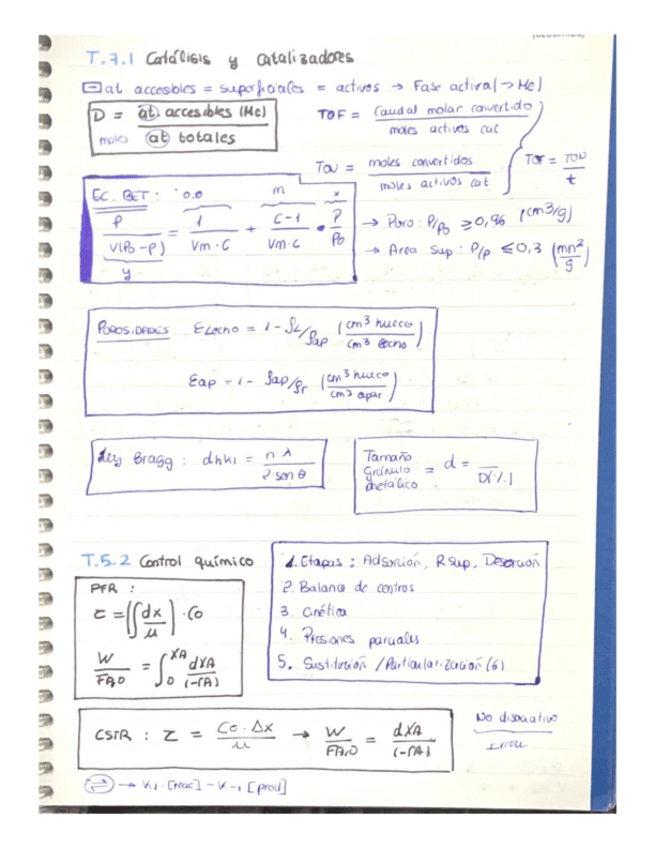 T.7.1 Catálisis y catalizadores
at accesibles = superficiales = activos → Fase activa (→ Me)
D = at. accesibles (Me) / at totales
moles
TOF = Caudal molar convertido / moles activos cat
TON = moles convertidos / moles activos cat
TOF = TON / t
EC. BET: 0.0 m x
P / V(P0 - P) = 1 / Vm·C + C-1 / Vm·C · P / P0
y
→ Poro: P/P0 ≥ 0,96 (cm3/g)
→ Area sup: P/P ≤ 0,3
POROSIDADES ε Lecho = 1 - ρL/ρap (cm3 hueco / cm3 lecho)
εap = 1 - ρap/ρr (cm3 hueco / cm3 apar)
Ley Bragg: dhkl = n·λ / 2·sen θ
Tamaño gránulo metálico = d = — / D(%)
T.5.2 Control químico
PFR:
τ = (∫ dx / μ) · Co
W / FA,0 = ∫0 XA dXA / (-rA)
1. Etapas: Adsorción, R Sup, Desorción
2. Balance de centros
3. Cinética
4. Presiones parciales
5. Sustitución / Particularización (6)
CSTR: τ = Co·Δx / μ → W / FA,0 = dXA / (-rA)
No disociativo
⇌ → K1·[reac] - K-1 [prod]